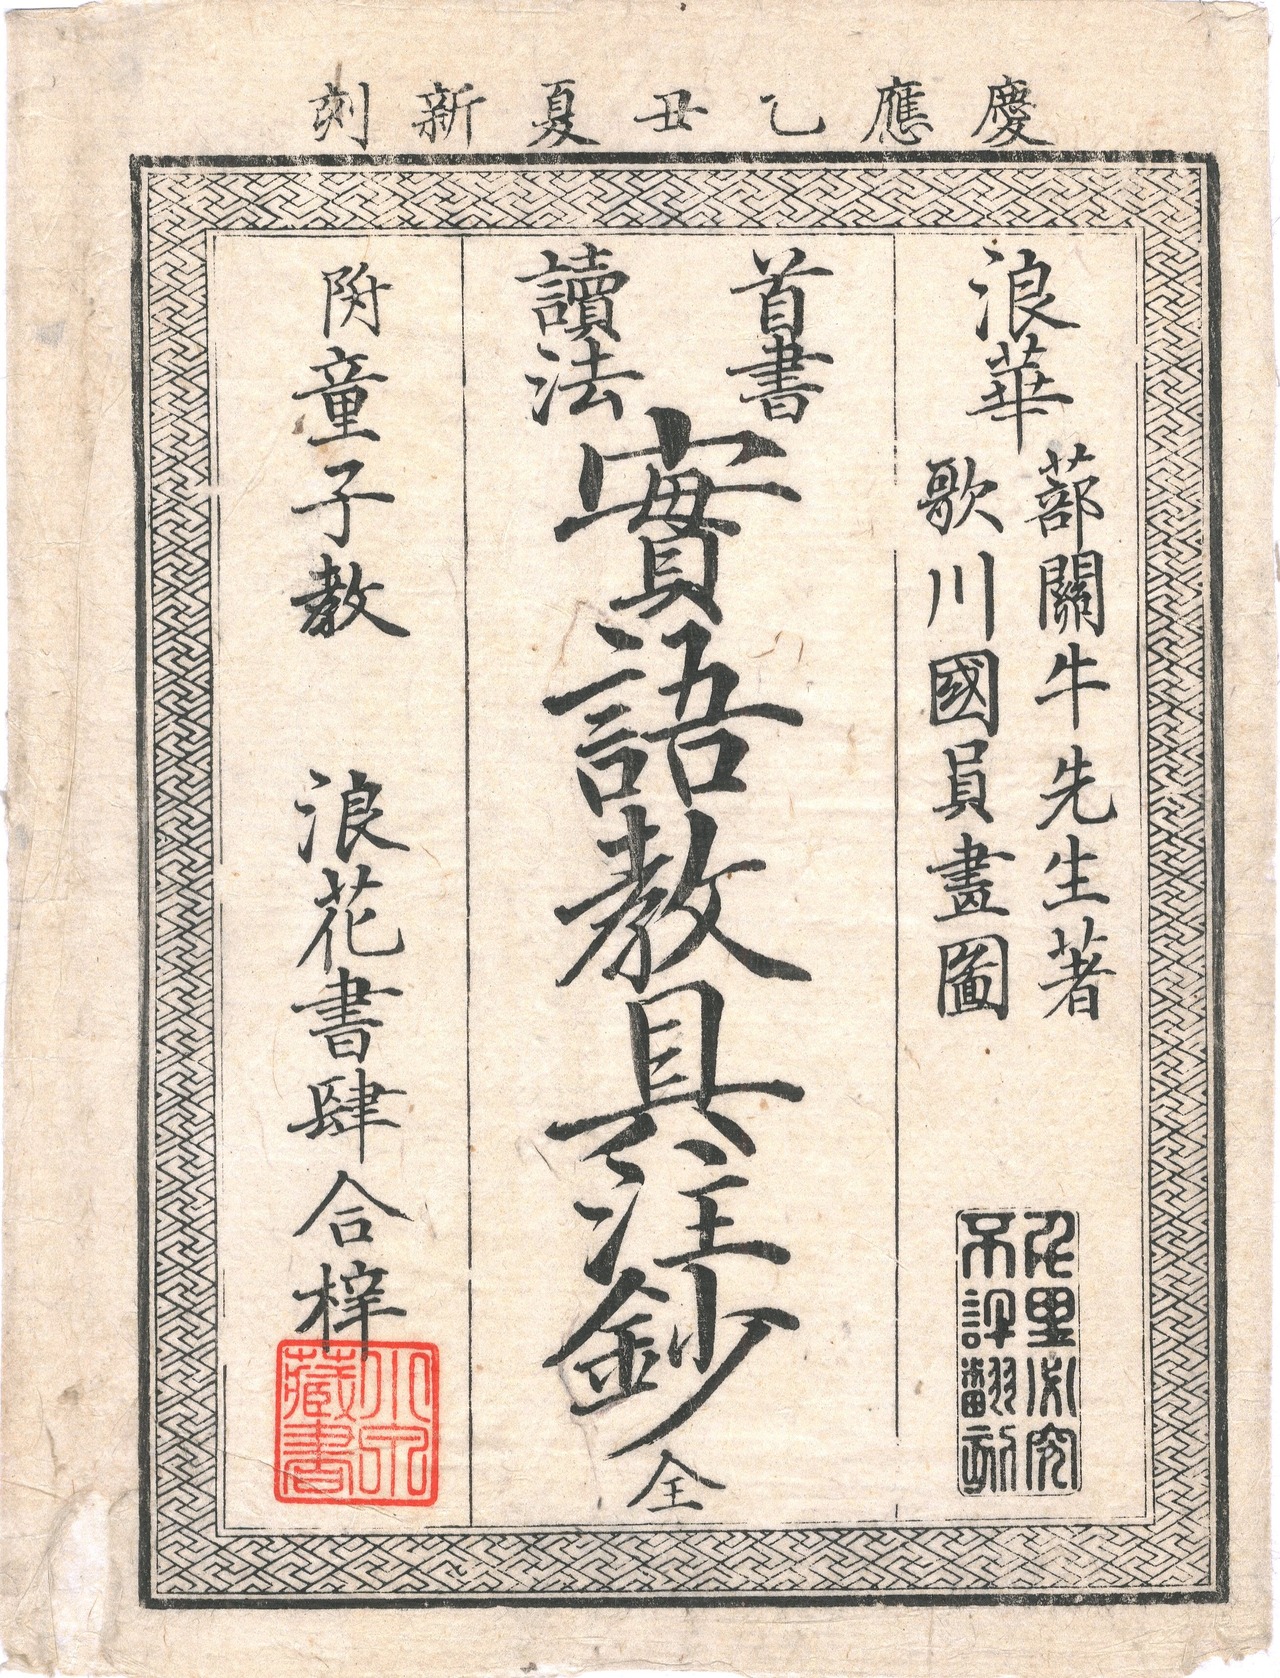 慶應乙丑夏新刻
浪華
蔀關牛先生著
歌川國員畫圖
不許翻刻
首書
讀法
實語教具注鈔 全
附童子教
浪花書肆合梓
小泉藏書